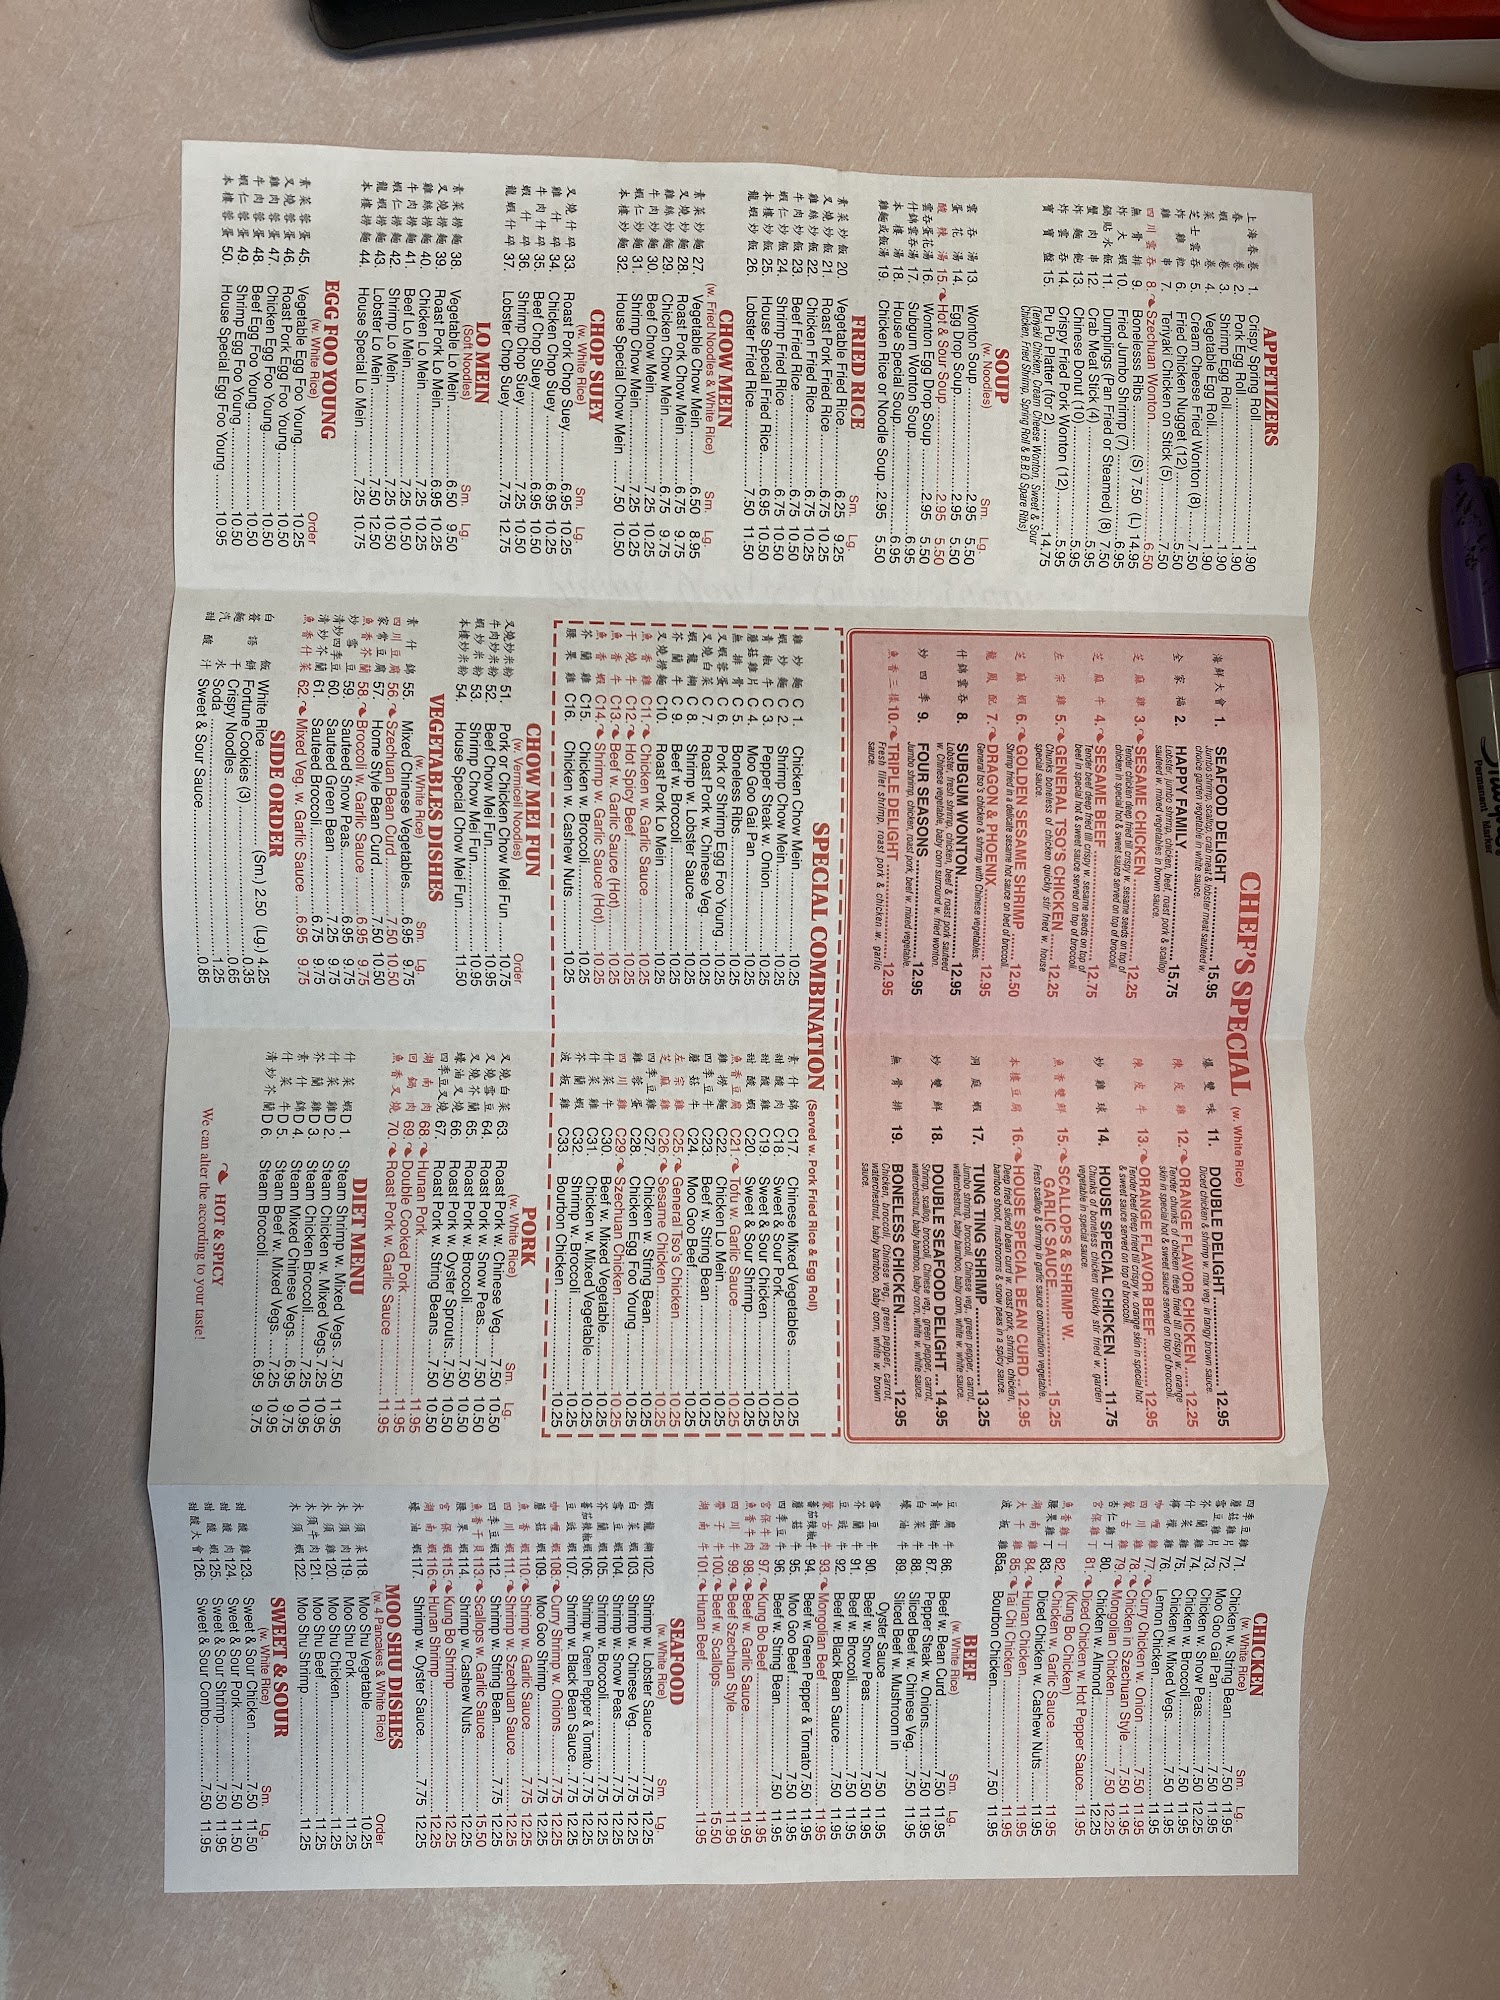 APPETIZERS
上海春卷 1. Crispy Spring Roll 1.90
春卷 2. Pork Egg Roll 1.90
蝦卷 3. Shrimp Egg Roll 1.90
菜卷 4. Vegetable Egg Roll 1.90
芝士雲吞 5. Cream Cheese Fried Wonton (8) 7.50
炸雞粒 6. Fried Chicken Nugget (12) 5.50
雞串 7. Teriyaki Chicken on Stick (5) 7.50
四川雲吞 8. Szechuan Wonton 6.50
無骨排 9. Boneless Ribs (S) 7.50 (L) 14.95
炸大蝦 10. Fried Jumbo Shrimp (7) 6.95
鍋貼水餃 11. Dumplings (Pan Fried or Steamed) (8) 7.50
蟹肉串 12. Crab Meat Stick (4) 5.95
炸麵飽 13. Chinese Donut (10) 5.95
炸雲吞 14. Crispy Fried Pork Wonton (12) 5.95
寶寶盤 15. Pu Pu Platter (for 2) 14.75
(Teriyaki Chicken, Cream Cheese Wonton, Sweet & Sour
Chicken, Fried Shrimp, Spring Roll & B.B.Q Spare Ribs)
SOUP
(w. Noodles) Sm. Lg.
雲吞湯 13. Wonton Soup 2.95 5.50
蛋花湯 14. Egg Drop Soup 2.95 5.50
酸辣湯 15. Hot & Sour Soup 2.95 5.50
雲吞蛋花湯 16. Wonton Egg Drop Soup 2.95 5.50
什錦雲吞湯 17. Subgum Wonton Soup 6.95
本樓湯 18. House Special Soup 6.95
雞麵或飯湯 19. Chicken Rice or Noodle Soup 2.95 5.50
FRIED RICE
Sm. Lg.
素菜炒飯 20. Vegetable Fried Rice 6.25 9.25
叉燒炒飯 21. Roast Pork Fried Rice 6.75 10.25
雞絲炒飯 22. Chicken Fried Rice 6.75 10.25
牛肉炒飯 23. Beef Fried Rice 6.75 10.50
蝦仁炒飯 24. Shrimp Fried Rice 6.75 10.50
本樓炒飯 25. House Special Fried Rice 6.95 10.50
龍蝦炒飯 26. Lobster Fried Rice 7.50 11.50
CHOW MEIN
(w. Fried Noodles & White Rice) Sm. Lg.
素菜炒麵 27. Vegetable Chow Mein 6.50 8.95
叉燒炒麵 28. Roast Pork Chow Mein 6.75 9.75
雞絲炒麵 29. Chicken Chow Mein 6.75 9.75
牛肉炒麵 30. Beef Chow Mein 7.25 10.25
蝦仁炒麵 31. Shrimp Chow Mein 7.25 10.25
本樓炒麵 32. House Special Chow Mein 7.50 10.50
CHOP SUEY
(w. White Rice) Sm. Lg.
叉燒什碎 33. Roast Pork Chop Suey 6.95 10.25
雞什碎 34. Chicken Chop Suey 6.95 10.25
牛肉什碎 35. Beef Chop Suey 6.95 10.50
蝦什碎 36. Shrimp Chop Suey 7.25 10.50
龍蝦什碎 37. Lobster Chop Suey 7.75 12.75
LO MEIN
(Soft Noodles) Sm. Lg.
素菜撈麵 38. Vegetable Lo Mein 6.50 9.50
叉燒撈麵 39. Roast Pork Lo Mein 6.95 10.25
雞絲撈麵 40. Chicken Lo Mein 7.25 10.25
牛肉撈麵 41. Beef Lo Mein 7.25 10.50
蝦仁撈麵 42. Shrimp Lo Mein 7.25 10.50
龍蝦撈麵 43. Lobster Lo Mein 7.50 12.50
本樓撈麵 44. House Special Lo Mein 7.25 10.75
EGG FOO YOUNG
(w. White Rice) Order
素菜蓉蛋 45. Vegetable Egg Foo Young 10.25
叉燒蓉蛋 46. Roast Pork Egg Foo Young 10.50
雞肉蓉蛋 47. Chicken Egg Foo Young 10.50
牛肉蓉蛋 48. Beef Egg Foo Young 10.50
蝦仁蓉蛋 49. Shrimp Egg Foo Young 10.50
本樓蓉蛋 50. House Special Egg Foo Young 10.95
CHEF'S SPECIAL (w. White Rice)
海鮮大會 1. SEAFOOD DELIGHT 15.95
Jumbo shrimp, scallop, crab meat & lobster meat sauteed w.
choice garden vegetable in white sauce.
全家福 2. HAPPY FAMILY 15.75
Lobster, jumbo shrimp, chicken, beef, roast pork & scallop
sauteed w. mixed vegetables in brown sauce.
芝麻雞 3. SESAME CHICKEN 12.25
Tender chicken deep fried till crispy w. sesame seeds on top of
chicken in special hot & sweet sauce served on top of broccoli.
芝麻牛 4. SESAME BEEF 12.75
Tender beef deep fried till crispy w. sesame seeds on top of
beef in special hot & sweet sauce served on top of broccoli.
左宗雞 5. GENERAL TSO'S CHICKEN 12.25
Chunks boneless of chicken quickly stir fried w. house
special sauce.
芝麻蝦 6. GOLDEN SESAME SHRIMP 12.50
Shrimp fried in a delicate sesame hot sauce on bed of broccoli.
龍鳳配 7. DRAGON & PHOENIX 12.95
General tso's chicken & shrimp with Chinese vegetables.
什錦雲吞 8. SUBGUM WONTON 12.95
Lobster, fresh shrimp, chicken, beef & roast pork sauteed
w. Chinese vegetable, baby corn surround w. fried wonton.
炒四季 9. FOUR SEASONS 12.95
Jumbo shrimp, chicken, roast pork, beef w. mixed vegetable.
魚香三樣 10. TRIPLE DELIGHT 12.95
Fresh filet shrimp, roast pork & chicken w. garlic
sauce.
爆雙味 11. DOUBLE DELIGHT 12.95
Diced chicken & shrimp w. mix veg. in tangy brown sauce.
陳皮雞 12. ORANGE FLAVOR CHICKEN 12.25
Tender chunks of chicken deep fried till crispy w. orange
skin in special hot & sweet sauce served on top of broccoli.
陳皮牛 13. ORANGE FLAVOR BEEF 12.95
Tender beef deep fried till crispy w. orange skin in special hot
& sweet sauce served on top of broccoli.
炒雞球 14. HOUSE SPECIAL CHICKEN 11.75
Chunks of boneless chicken quickly stir fried w. garden
vegetable in special sauce.
魚香雙鮮 15. SCALLOPS & SHRIMP W.
GARLIC SAUCE 15.25
Fresh scallop & shrimp in garlic sauce combination vegetable.
本樓豆腐 16. HOUSE SPECIAL BEAN CURD 12.95
Deep fried sliced bean curd w. roast pork, shrimp, chicken,
bamboo shoot, mushrooms & snow peas in a spicy sauce.
洞庭蝦 17. TUNG TING SHRIMP 13.25
Jumbo shrimp, broccoli, Chinese veg., green pepper, carrot,
waterchestnut, baby bamboo, baby corn, white w. white sauce.
炒雙鮮 18. DOUBLE SEAFOOD DELIGHT 14.95
Shrimp, scallop, broccoli, Chinese veg., green pepper, carrot,
waterchestnut, baby bamboo, baby corn, white w. white sauce.
無骨排 19. BONELESS CHICKEN 12.95
Chicken, broccoli, Chinese veg., green pepper, carrot,
waterchestnut, baby bamboo, baby corn, white w. brown
sauce.
SPECIAL COMBINATION (Served w. Pork Fried Rice & Egg Roll)
雞炒麵 C 1. Chicken Chow Mein 10.25
蝦炒麵 C 2. Shrimp Chow Mein 10.25
青椒牛 C 3. Pepper Steak w. Onion 10.25
蘑菇雞片 C 4. Moo Goo Gai Pan 10.25
無排骨 C 5. Boneless Ribs 10.25
叉蝦蓉蛋 C 6. Pork or Shrimp Egg Foo Young 10.25
叉燒白菜 C 7. Roast Pork w. Chinese Veg. 10.25
蝦龍糊 C 8. Shrimp w. Lobster Sauce 10.25
芥蘭牛 C 9. Beef w. Broccoli 10.25
叉燒撈麵 C10. Roast Pork Lo Mein 10.25
魚香雞 C11. Chicken w. Garlic Sauce 10.25
干燒牛 C12. Hot Spicy Beef 10.25
魚香牛 C13. Beef w. Garlic Sauce (Hot) 10.25
魚香蝦 C14. Shrimp w. Garlic Sauce (Hot) 10.25
芥蘭雞 C15. Chicken w. Broccoli 10.25
腰果雞 C16. Chicken w. Cashew Nuts 10.25
素什錦 C17. Chinese Mixed Vegetables 10.25
甜酸肉 C18. Sweet & Sour Pork 10.25
甜酸雞 C19. Sweet & Sour Chicken 10.25
甜酸蝦 C20. Sweet & Sour Shrimp 10.25
魚香豆腐 C21. Tofu w. Garlic Sauce 10.25
雞撈麵 C22. Chicken Lo Mein 10.25
四季豆牛 C23. Beef w. String Bean 10.25
蘑菇牛 C24. Moo Goo Beef 10.25
左宗雞 C25. General Tso's Chicken 10.25
芝麻雞 C26. Sesame Chicken 10.25
四季豆雞 C27. Chicken w. String Bean 10.25
雞蓉蛋 C28. Chicken Egg Foo Young 10.25
四川雞 C29. Szechuan Chicken 10.25
什菜牛 C30. Beef w. Mixed Vegetable 10.25
什菜雞 C31. Chicken w. Mixed Vegetable 10.25
芥蘭蝦 C32. Shrimp w. Broccoli 10.25
波板雞 C33. Bourbon Chicken 10.25
CHOW MEI FUN
(w. Vermiceli Noodles) Order
叉燒炒米粉 51. Pork or Chicken Chow Mei Fun 10.75
牛肉炒米粉 52. Beef Chow Mei Fun 10.95
蝦炒米粉 53. Shrimp Chow Mei Fun 10.95
本樓炒米粉 54. House Special Chow Mei Fun 11.50
VEGETABLES DISHES
(w. White Rice) Sm. Lg.
素什錦 55. Mixed Chinese Vegetables 6.95 9.75
四川豆腐 56. Szechuan Bean Curd 7.50 10.50
家常豆腐 57. Home Style Bean Curd 7.50 10.50
魚香芥蘭 58. Broccoli w. Garlic Sauce 6.95 9.75
炒雪豆 59. Sauteed Snow Peas 6.95 9.75
清炒四季豆 60. Sauteed Green Bean 7.25 9.75
清炒芥蘭 61. Sauteed Broccoli 6.75 9.75
魚香什菜 62. Mixed Veg. w. Garlic Sauce 6.95 9.75
SIDE ORDER
白飯 White Rice (Sm.) 2.50 (Lg.) 4.25
簽語餅 Fortune Cookies (3) 0.35
麵干 Crispy Noodles 0.65
汽水 Soda 1.25
甜酸汁 Sweet & Sour Sauce 0.85
PORK
(w. White Rice) Sm. Lg.
叉燒白菜 63. Roast Pork w. Chinese Veg. 7.50 10.50
叉燒雪豆 64. Roast Pork w. Snow Peas 7.50 10.50
叉燒芥蘭 65. Roast Pork w. Broccoli 7.50 10.50
蠔油叉燒 66. Roast Pork w. Oyster Sprouts 7.50 10.50
四季豆叉燒 67. Roast Pork w. String Beans 7.50 10.50
湖南肉 68. Hunan Pork 11.95
回鍋肉 69. Double Cooked Pork 11.95
魚香叉燒 70. Roast Pork w. Garlic Sauce 11.95
DIET MENU
什菜蝦 D 1. Steam Shrimp w. Mixed Vegs. 7.50 11.95
什菜雞 D 2. Steam Chicken w. Mixed Vegs. 7.25 10.95
芥蘭雞 D 3. Steam Chicken Broccoli 7.25 10.95
素什錦 D 4. Steam Mixed Chinese Vegs. 6.95 9.75
什菜牛 D 5. Steam Beef w. Mixed Vegs. 7.25 10.95
清炒芥蘭 D 6. Steam Broccoli 6.95 9.75
HOT & SPICY
We can alter the according to your taste!
CHICKEN
(w. White Rice) Sm. Lg.
四季豆雞 71. Chicken w. String Bean 7.50 11.95
蘑菇雞片 72. Moo Goo Gai Pan 7.50 11.95
雪豆雞片 73. Chicken w. Snow Peas 12.25
芥蘭雞 74. Chicken w. Broccoli 7.50 11.95
什菜雞 75. Chicken w. Mixed Vegs. 7.50 11.95
檸檬雞 76. Lemon Chicken 11.95
咖喱雞 77. Curry Chicken w. Onion 7.50 11.95
四川雞 78. Chicken in Szechuan Style 7.50 11.95
蒙古雞 79. Mongolian Chicken 7.50 12.25
杏仁雞 80. Chicken w. Almond 12.25
宮保雞丁 81. Diced Chicken w. Hot Pepper Sauce 11.95
(Kung Bo Chicken)
魚香雞 82. Chicken w. Garlic Sauce 11.95
腰果雞丁 83. Diced Chicken w. Cashew Nuts 11.95
湖南雞 84. Hunan Chicken 11.95
大千雞 85. Tai Chi Chicken 11.95
波板雞 85a. Bourbon Chicken 7.50 11.95
BEEF
(w. White Rice) Sm. Lg.
豆腐牛 86. Beef w. Bean Curd 7.50 11.95
青椒牛 87. Pepper Steak w. Onions 7.50 11.95
白菜牛 88. Sliced Beef w. Chinese Veg. 7.50 11.95
蠔油牛 89. Sliced Beef w. Mushroom in
Oyster Sauce 7.50 11.95
雪豆牛 90. Beef w. Snow Peas 7.50 11.95
芥蘭牛 91. Beef w. Broccoli 7.50 11.95
豆豉牛 92. Beef w. Black Bean Sauce 7.50 11.95
蒙古牛 93. Mongolian Beef 11.95
蕃茄辣椒牛 94. Beef w. Green Pepper & Tomato 7.50 11.95
蘑菇牛 95. Moo Goo Beef 7.50 11.95
四季豆牛 96. Beef w. String Bean 7.50 11.95
宮保牛肉 97. Kung Bo Beef 11.95
魚香牛肉 98. Beef w. Garlic Sauce 11.95
四川牛 99. Beef Szechuan Style 11.95
帶子牛 100. Beef w. Scallops 15.50
湖南牛 101. Hunan Beef 11.95
SEAFOOD
(w. White Rice) Sm. Lg.
蝦龍糊 102. Shrimp w. Lobster Sauce 7.75 12.25
白菜蝦 103. Shrimp w. Chinese Veg. 7.75 12.25
雪豆蝦 104. Shrimp w. Snow Peas 7.75 12.25
芥蘭蝦 105. Shrimp w. Broccoli 7.75 12.25
蕃茄辣椒蝦 106. Shrimp w. Green Pepper & Tomato 7.75 12.25
豆豉蝦 107. Shrimp w. Black Bean Sauce 7.75 12.25
咖喱蝦 108. Curry Shrimp w. Onions 7.75 12.25
蘑菇蝦 109. Moo Goo Shrimp 7.75 12.25
魚香蝦 110. Shrimp w. Garlic Sauce 7.75 12.25
四川蝦 111. Shrimp w. Szechuan Sauce 12.25
四季豆蝦 112. Shrimp w. String Bean 7.75 12.25
魚香干貝 113. Scallops w. Garlic Sauce 15.50
腰果蝦 114. Shrimp w. Cashew Nuts 12.25
宮保蝦 115. Kung Bo Shrimp 12.25
湖南蝦 116. Hunan Shrimp 12.25
蠔油蝦 117. Shrimp w. Oyster Sauce 7.75 12.25
MOO SHU DISHES
(w. 4 Pancakes & White Rice) Order
木須菜 118. Moo Shu Vegetable 10.25
木須肉 119. Moo Shu Pork 11.25
木須雞 120. Moo Shu Chicken 11.25
木須牛肉 121. Moo Shu Beef 11.25
木須蝦 122. Moo Shu Shrimp 11.25
SWEET & SOUR
(w. White Rice) Sm. Lg.
甜酸雞 123. Sweet & Sour Chicken 7.50 11.50
甜酸肉 124. Sweet & Sour Pork 7.50 11.50
甜酸蝦 125. Sweet & Sour Shrimp 7.50 11.95
甜酸大會 126. Sweet & Sour Combo 7.50 11.95
Permanent Marker